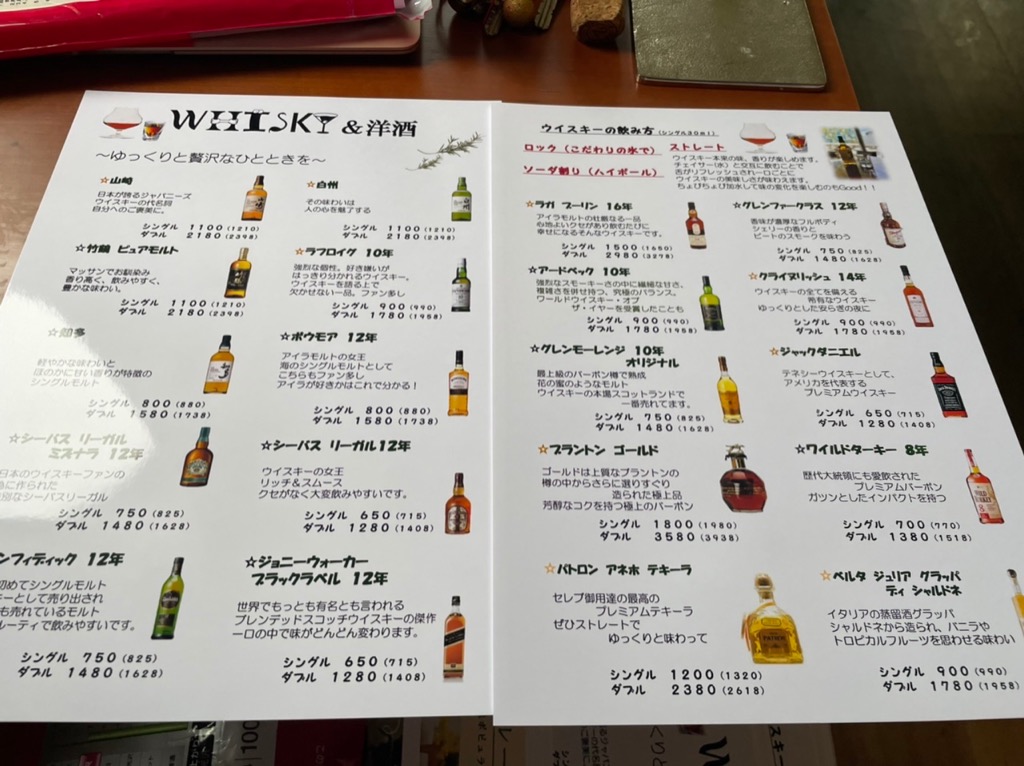 WHISKY &洋酒
～ゆっくりと贅沢なひとときを～
☆山崎
日本が誇るジャパニーズ
ウイスキーの代名詞
自分へのご褒美に。
シングル 1100(1210)
ダブル 2180(2398)
☆白州
その味わいは
人の心を魅了する
シングル 1100(1210)
ダブル 2180(2398)
☆竹鶴 ピュアモルト
マッサンでお馴染み
香り高く、飲みやすく、
豊かな味わい。
シングル 1100(1210)
ダブル 2180(2398)
☆ラフロイグ 10年
強烈な個性。好き嫌いが
はっきり分かれるウイスキー。
ウイスキーを語る上で
欠かせない一品。ファン多し
シングル 900(990)
ダブル 1780(1958)
☆知多
軽やかな味わいと
ほのかに甘い香りが特徴の
シングルモルト
シングル 800(880)
ダブル 1580(1738)
☆ボウモア 12年
アイラモルトの女王
海のシングルモルトとして
こちらもファン多し
アイラが好きかはこれで分かる!
シングル 800(880)
ダブル 1580(1738)
☆シーバス リーガル
ミズナラ 12年
日本のウイスキーファンの
に作られた
別なシーバスリーガル
シングル 750(825)
ダブル 1480(1628)
☆シーバス リーガル12年
ウイスキーの女王
リッチ&スムース
クセがなく大変飲みやすいです。
シングル 650(715)
ダブル 1280(1408)
ンフィディック 12年
初めてシングルモルト
キーとして売り出され
も売れているモルト
ルーティで飲みやすいです。
シングル 750(825)
ダブル 1480(1628)
☆ジョニーウォーカー
ブラックラベル 12年
世界でもっとも有名とも言われる
ブレンデッドスコッチウイスキーの傑作
一口の中で味がどんどん変わります。
シングル 650(715)
ダブル 1280(1408)
ウイスキーの飲み方(シングル30ml)
ロック(こだわりの氷で)
ソーダ割り(ハイボール)
ストレート
ウイスキー本来の味、香りが楽しめます。
チェイサー(水)と交互に飲むことで
舌がリフレッシュされ一口ごとに
ウイスキーの美味しさが味わえます。
ちょびちょび加水して味の変化を楽しむのもGood!!
☆ラガ ブーリン 16年
アイラモルトの壮厳なる一品
心地よいクセがあり飲むたびに
幸せになるそんなウイスキーです。
シングル 1500(1650)
ダブル 2980(3278)
☆グレンファークラス 12年
香味が濃厚なフルボディ
シェリーの香りと
ピートのスモークを味わう
シングル 750(825)
ダブル 1480(1628)
☆アードベック 10年
強烈なスモーキーさの中に繊細な甘さ、
複雑さを併せ持つ、究極のバランス。
ワールドウイスキー・オブ
ザ・イヤーを受賞したことも
シングル 900(990)
ダブル 1780(1958)
☆クライヌリッシュ 14年
ウイスキーの全てを備える
稀有なウイスキー
ゆっくりとした安らぎの夜に
シングル 900(990)
ダブル 1780(1958)
☆グレンモーレンジ 10年
オリジナル
最上級のバーボン樽で熟成
花の蜜のようなモルト
ウイスキーの本場スコットランドで
一番売れてます。
シングル 750(825)
ダブル 1480(1628)
☆ジャックダニエル
テネシーウイスキーとして、
アメリカを代表する
プレミアムウイスキー
シングル 650(715)
ダブル 1280(1408)
☆ブラントン ゴールド
ゴールドは上質なブラントンの
樽の中からさらに選りすぐり
造られた極上品
芳醇なコクを持つ極上のバーボン
シングル 1800(1980)
ダブル 3580(3938)
☆ワイルドターキー 8年
歴代大統領にも愛飲された
プレミアムバーボン
ガツンとしたインパクトを持つ
シングル 700(770)
ダブル 1380(1518)
☆パトロン アネホ テキーラ
セレブ御用達の最高の
プレミアムテキーラ
ぜひストレートで
ゆっくりと味わって
シングル 1200(1320)
ダブル 2380(2618)
☆ベルタ ジュリア グラッパ
ディ シャルドネ
イタリアの蒸留酒グラッパ
シャルドネから造られ、バニラや
トロピカルフルーツを思わせる味わい
シングル 900(990)
ダブル 1780(1958)